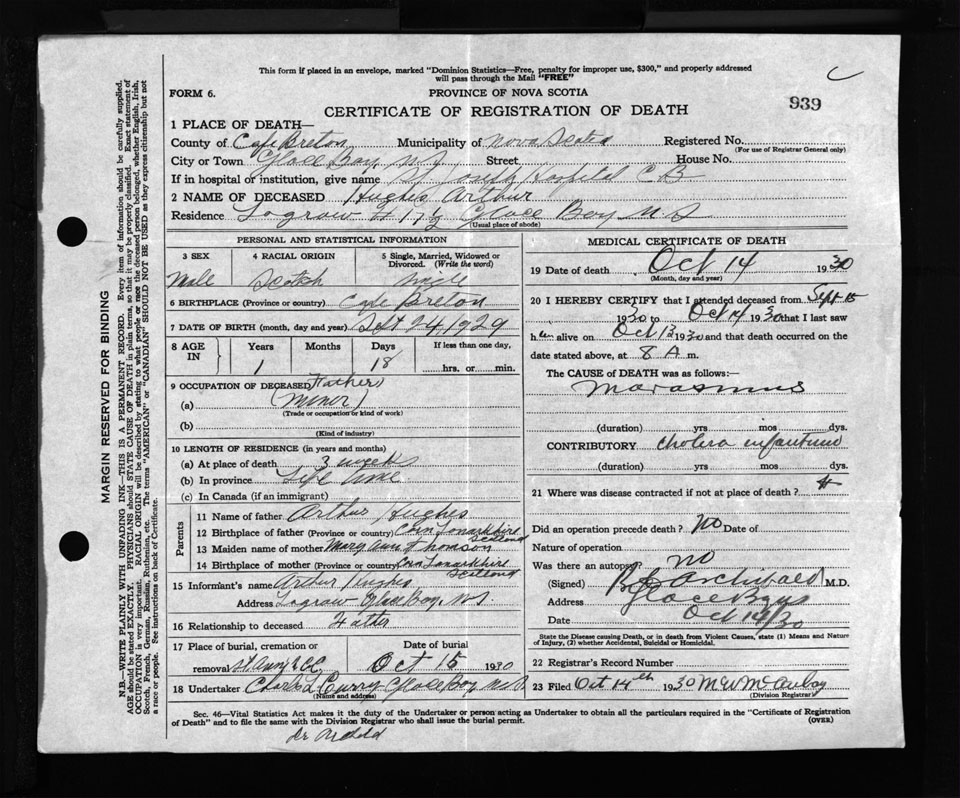 This form if placed in an envelope, marked "Dominion Statistics—Free, penalty for improper use, $300," and properly addressed
will pass through the Mail "FREE"
FORM 6.
PROVINCE OF NOVA SCOTIA
939
CERTIFICATE OF REGISTRATION OF DEATH
1 PLACE OF DEATH—
County of Cape Breton Municipality of Nova Scotia Registered No.
(For use of Registrar General only)
City or Town Glace Bay N.S. Street House No.
If in hospital or institution, give name St Joseph Hospital C B
2 NAME OF DECEASED Hughes Arthur
Residence Glace Bay N S
(Usual place of abode)
PERSONAL AND STATISTICAL INFORMATION
3 SEX 4 RACIAL ORIGIN 5 Single, Married, Widowed or Divorced. (Write the word)
Male Scotch Single
6 BIRTHPLACE (Province or country) Cape Breton
7 DATE OF BIRTH (month, day and year) Sept 24, 1929
8 AGE IN Years Months Days If less than one day,
1 18 hrs. or min.
9 OCCUPATION OF DECEASED (Father)
(a) (Miner)
(Trade or occupation or kind of work)
(b)
(Kind of industry)
10 LENGTH OF RESIDENCE (in years and months)
(a) At place of death 3 weeks
(b) In province Life time
(c) In Canada (if an immigrant)
Parents
11 Name of father Arthur Hughes
12 Birthplace of father (Province or country) Lanarkshire Scotland
13 Maiden name of mother Mary Ann Thomson
14 Birthplace of mother (Province or country) Lanarkshire Scotland
15 Informant's name Arthur Hughes
Address Glace Bay, N.S.
16 Relationship to deceased Father
17 Place of burial, cremation or removal St Anns Date of burial Oct 15 1930
18 Undertaker Charles Curry Glace Bay N.S.
(Name and address)
MEDICAL CERTIFICATE OF DEATH
19 Date of death Oct 14 1930
(Month, day and year)
20 I HEREBY CERTIFY that I attended deceased from Sept 15
1930 to Oct 14 1930 that I last saw
h im alive on Oct 13 1930 and that death occurred on the
date stated above, at 8 A m.
The CAUSE of DEATH was as follows:—
Marasmus
(duration) yrs mos dys.
CONTRIBUTORY Cholera infantum
(duration) yrs mos dys.
21 Where was disease contracted if not at place of death?
Did an operation precede death? No Date of
Nature of operation
Was there an autopsy? no
(Signed) Archibald M.D.
Address Glace Bay
Date Oct 14/30
State the Disease causing Death, or in death from Violent Causes, state (1) Means and Nature of Injury, (2) whether Accidental, Suicidal or Homicidal.
22 Registrar's Record Number
23 Filed Oct 14th 1930 M W McAulay
(Division Registrar)
Sec. 46—Vital Statistics Act makes it the duty of the Undertaker or person acting as Undertaker to obtain all the particulars required in the "Certificate of Registration
of Death" and to file the same with the Division Registrar who shall issue the burial permit.
(OVER)
MARGIN RESERVED FOR BINDING
N.B.—WRITE PLAINLY WITH UNFADING INK—THIS IS A PERMANENT RECORD. Every item of information should be carefully supplied.
AGE should be stated EXACTLY. PHYSICIANS should STATE CAUSE OF DEATH in plain terms, so that it may be properly classified. Exact statement of
OCCUPATION is very important. RACIAL ORIGIN will be described by stating to what people or race the deceased person belonged, whether English, Irish,
Scotch, French, German, Russian, Ruthenian, etc. The terms "AMERICAN" or "CANADIAN" SHOULD NOT BE USED as they express citizenship but not
a race or people. See instructions on back of Certificate.